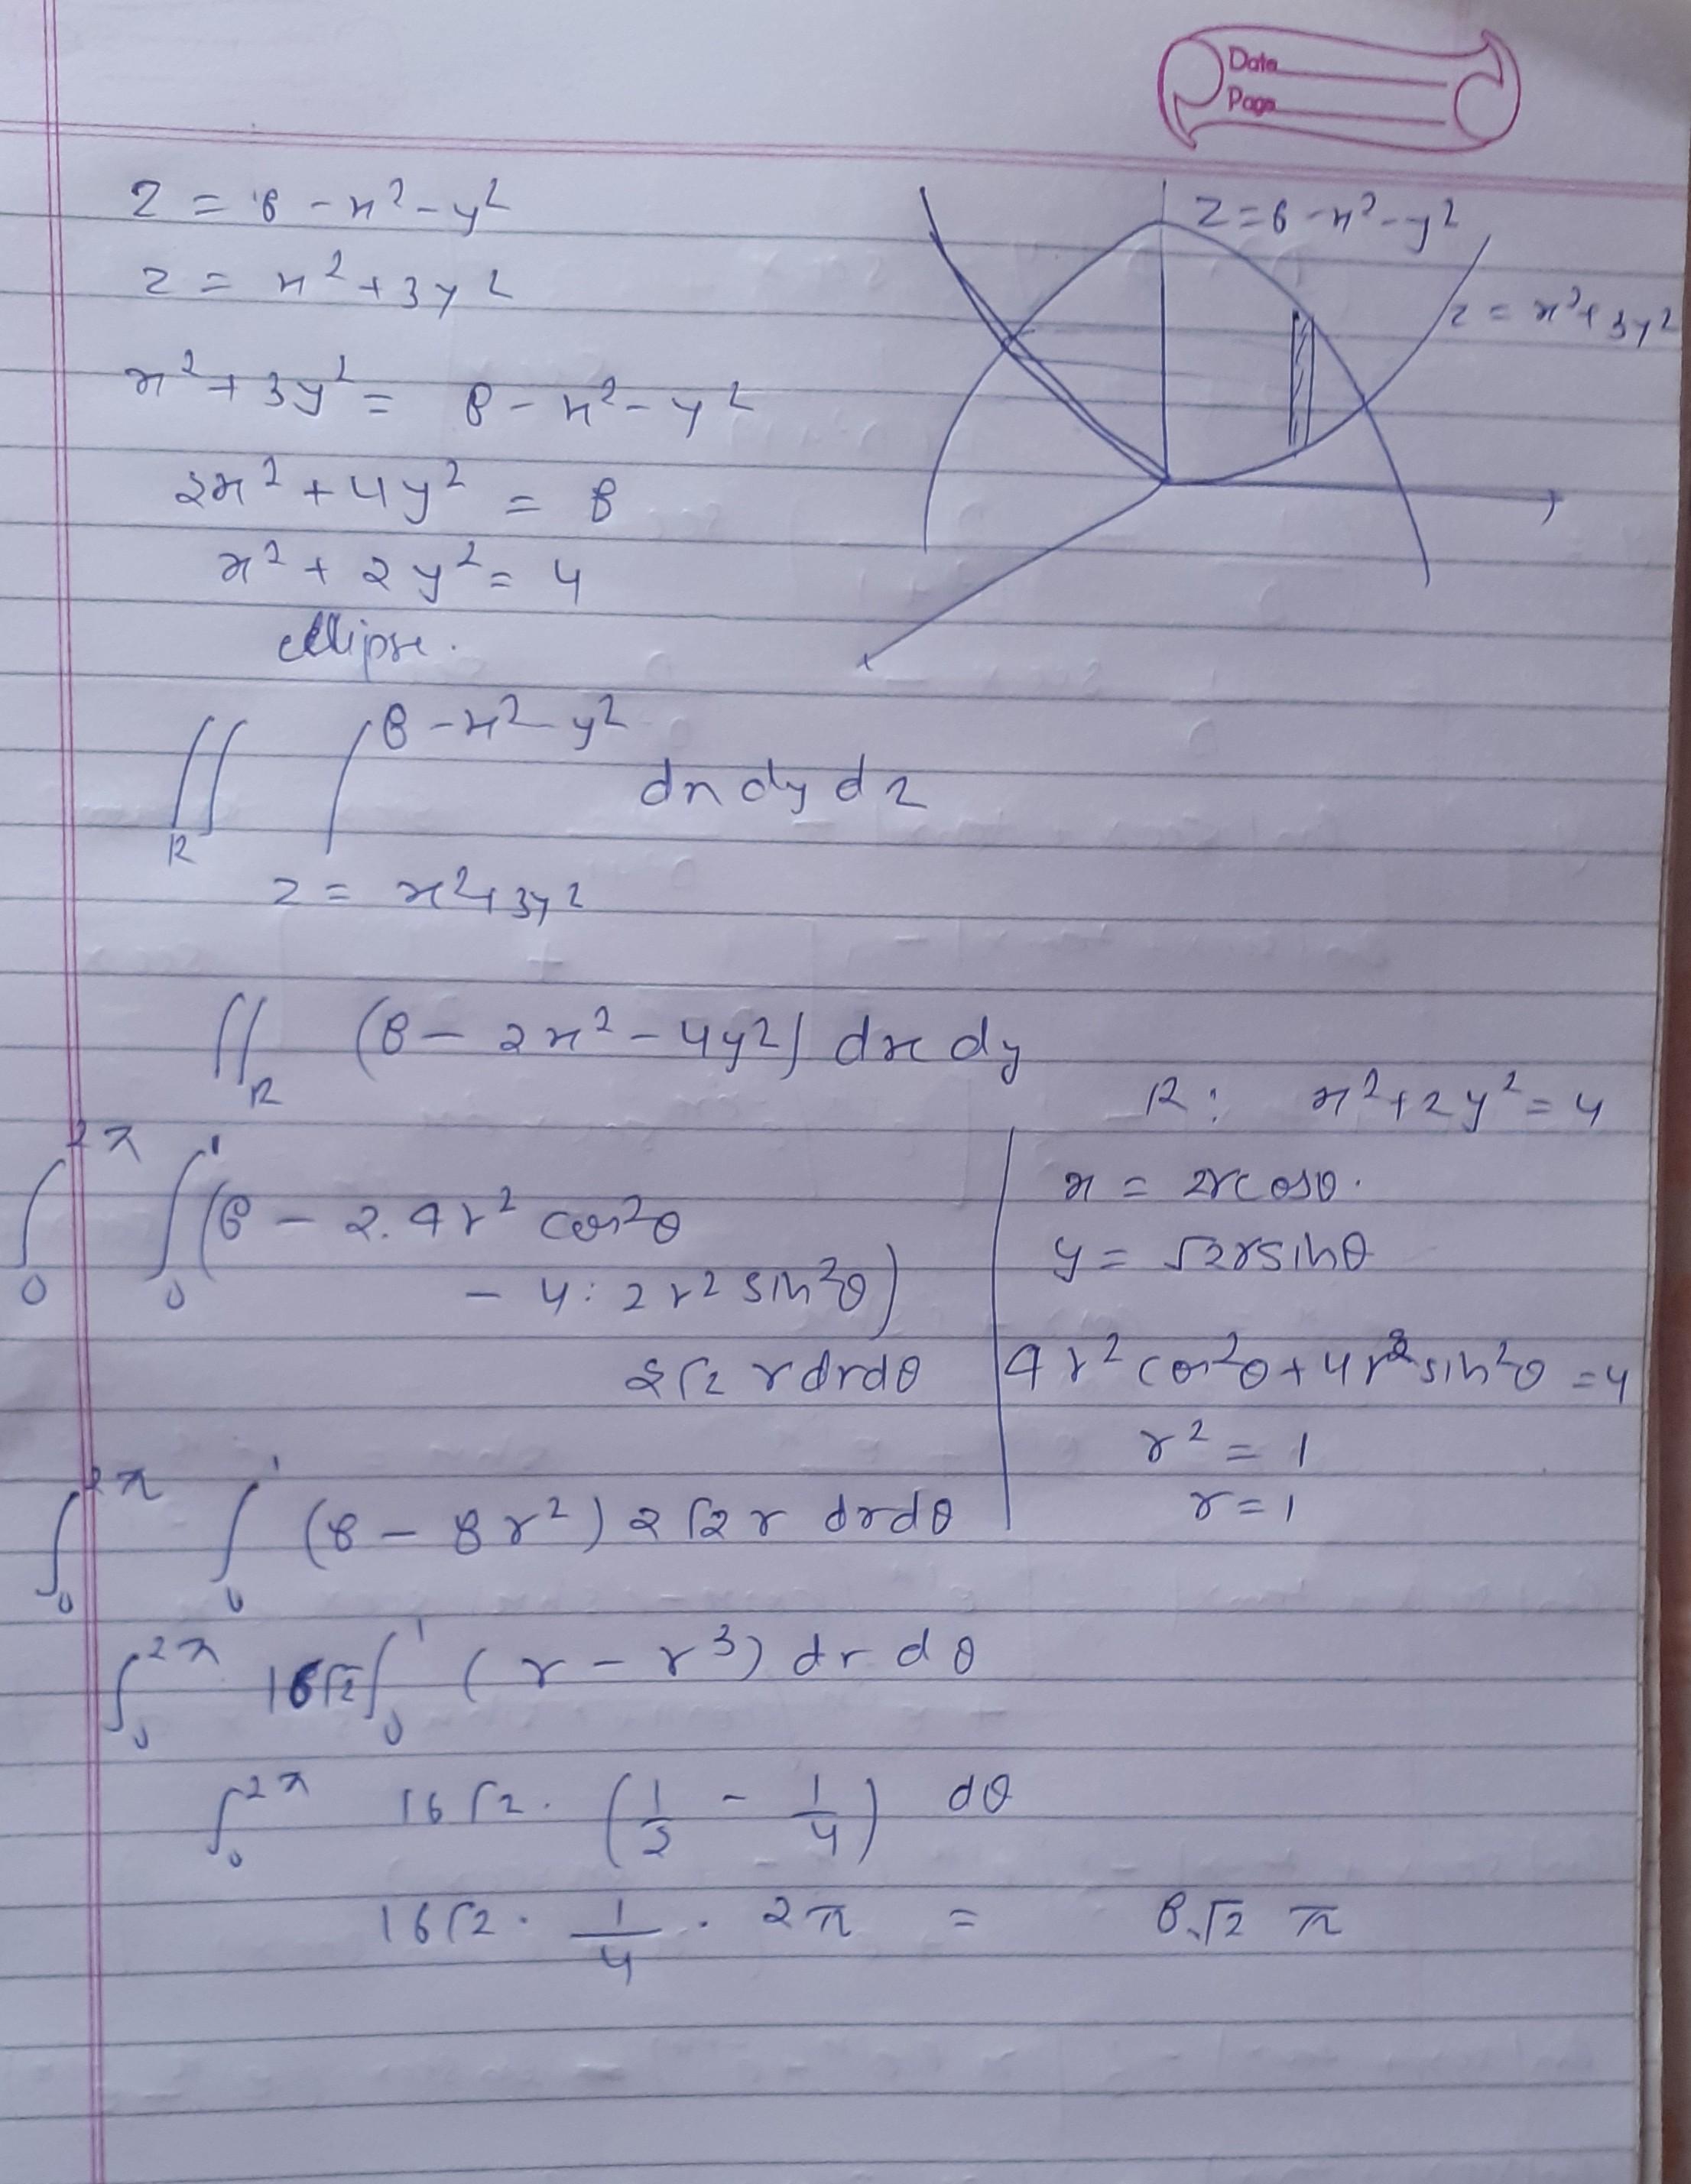 Date
Page
z = 8 - x² - y²
z = x² + 3y²
x² + 3y² = 8 - x² - y²
2x² + 4y² = 8
x² + 2y² = 4
ellipse.
z = 8 - x² - y²
z = x² + 3y²
∬_R ∫_{z = x² + 3y²}^{8 - x² - y²} dx dy dz
∬_R (8 - 2x² - 4y²) dx dy
R: x² + 2y² = 4
∫₀^{2π} ∫₀^1 (8 - 2.4r² cos²θ
- 4.2r² sin²θ)
2√2 r dr dθ
x = 2r cosθ.
y = √2 r sinθ
4r² cos²θ + 4r² sin²θ = 4
r² = 1
r = 1
∫₀^{2π} ∫₀^1 (8 - 8r²) 2√2 r dr dθ
∫₀^{2π} 16√2 ∫₀^1 (r - r³) dr dθ
∫₀^{2π} 16√2 . (1/2 - 1/4) dθ
16√2 . 1/4 . 2π = 8√2 π